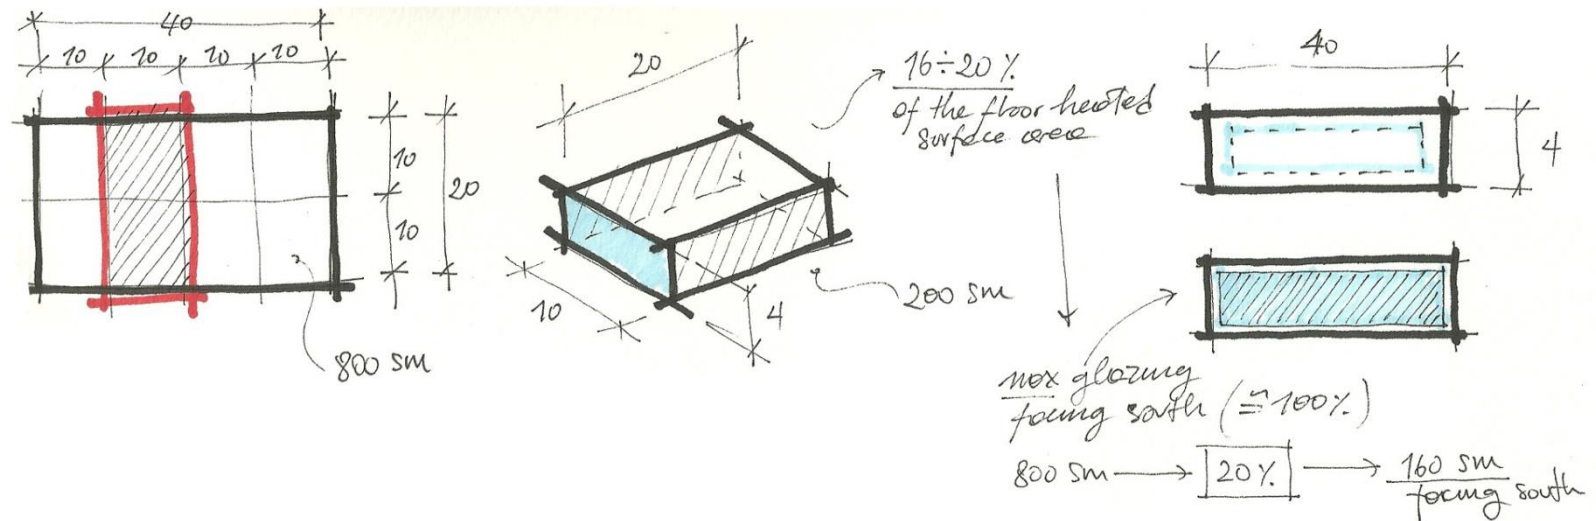 40
10 10 10 10
10
20
10
800 sm
20
10
4
200 sm
16÷20%
of the floor heated
surface area
40
4
max glazing
facing south (≅100%)
800 sm → 20% → 160 sm
facing south